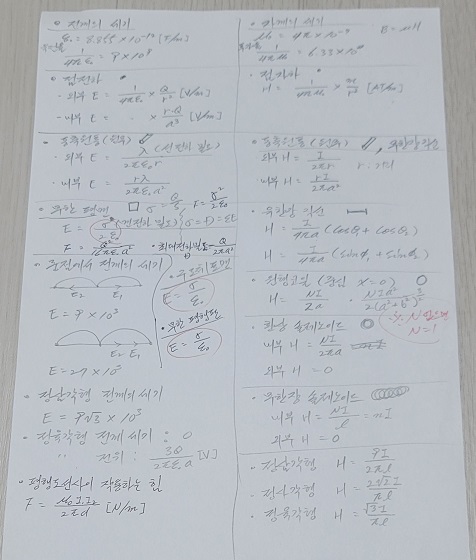 • 전계의 세기
ε₀ = 8.855 × 10⁻¹² [F/m]
1/4πε₀ = 9 × 10⁹
• 점전하 •
- 외부 E = 1/4πε₀ × Q/r² [V/m]
- 내부 E = " × r·Q/a³ [V/m]
• 동축원통 (원주)
• 외부 E = λ/2πε₀r (선전하 밀도)
• 내부 E = rλ/2πε₀a²
• 무한 평면 □ σ = Q/S, F = σ²/2ε₀
E = σ/2ε₀ (면전하 밀도)
F = Q²/16πε₀a² • 최대전하밀도 = Q/2πa²
• 두점에서 전계의 세기
E₂ E₁
E = 9 × 10³
E₂ E₁
E = 27 × 10³
• 구도체 표면
E = σ/ε₀
• 무한 평행판
E = σ/ε₀
• 정삼각형 전계의 세기
E =
• 정육각형 전계 세기 : 0
" 전위 : 3Q/2πε₀a [V]
• 평행도선사이 작용하는 힘
F = μ₀I₁I₂/2πd [N/m]
• 자계의 세기
μ₀ = 4π × 10⁻⁷ B = μH
1/4πμ₀ = 6.33 × 10⁴
• 점자하 •
H = 1/4πμ₀ × m/r² [AT/m]
• 동축원통 (원주) , 무한장 직선
외부 H = I/2πr r : 거리
내부 H = rI/2πa²
• 유한장 직선
H = I/4πa (cosθ₁ + cosθ₂)
H = I/4πa (sinφ₁ + sinφ₂)
• 원형코일 (중심 x=0)
H = NI/2a , NIa²/2(a²+b²)^3/2
N 없으면
N=1
• 환상 솔레노이드
내부 H = NI/2πa
외부 H = 0
• 무한장 솔레노이드
내부 H = NI/l = nI
외부 H = 0
• 정삼각형 H = 9I/2πl
• 정사각형 H = 2√2I/πl
• 정육각형 H = √3I/πl